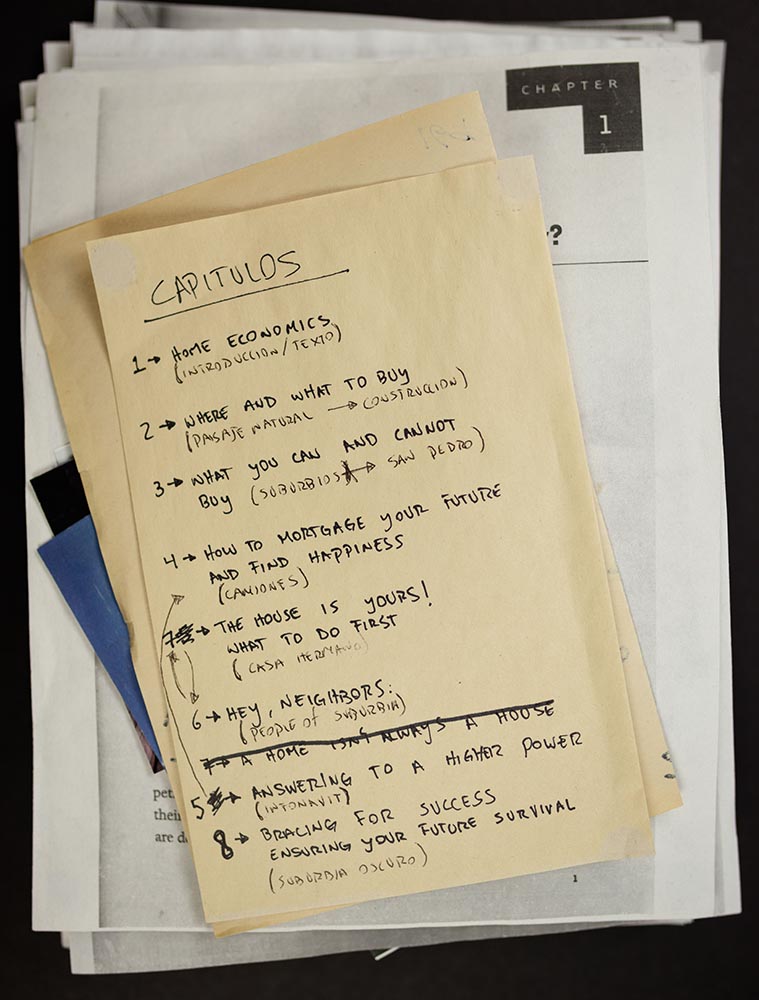 CHAPTER
1
?
CAPITULOS
1→ HOME ECONOMICS
(INTRODUCCION/TEXTO)
2→ WHERE AND WHAT TO BUY
(PAISAJE NATURAL → CONSTRUCCION)
3→ WHAT YOU CAN AND CANNOT
BUY (SUBURBIOS → SAN PEDRO)
4→ HOW TO MORTGAGE YOUR FUTURE
AND FIND HAPPINESS
(CAMIONES)
7→ THE HOUSE IS YOURS!
WHAT TO DO FIRST
(CASA HERMANO)
6→ HEY, NEIGHBORS:
(PEOPLE OF SUBURBIA)
7→ A HOME ISN'T ALWAYS A HOUSE
5→ ANSWERING TO A HIGHER POWER
(INFONAVIT)
8→ BRACING FOR SUCCESS
ENSURING YOUR FUTURE SURVIVAL
(SUBURBIA OSCURO)
pet
their
are d
1